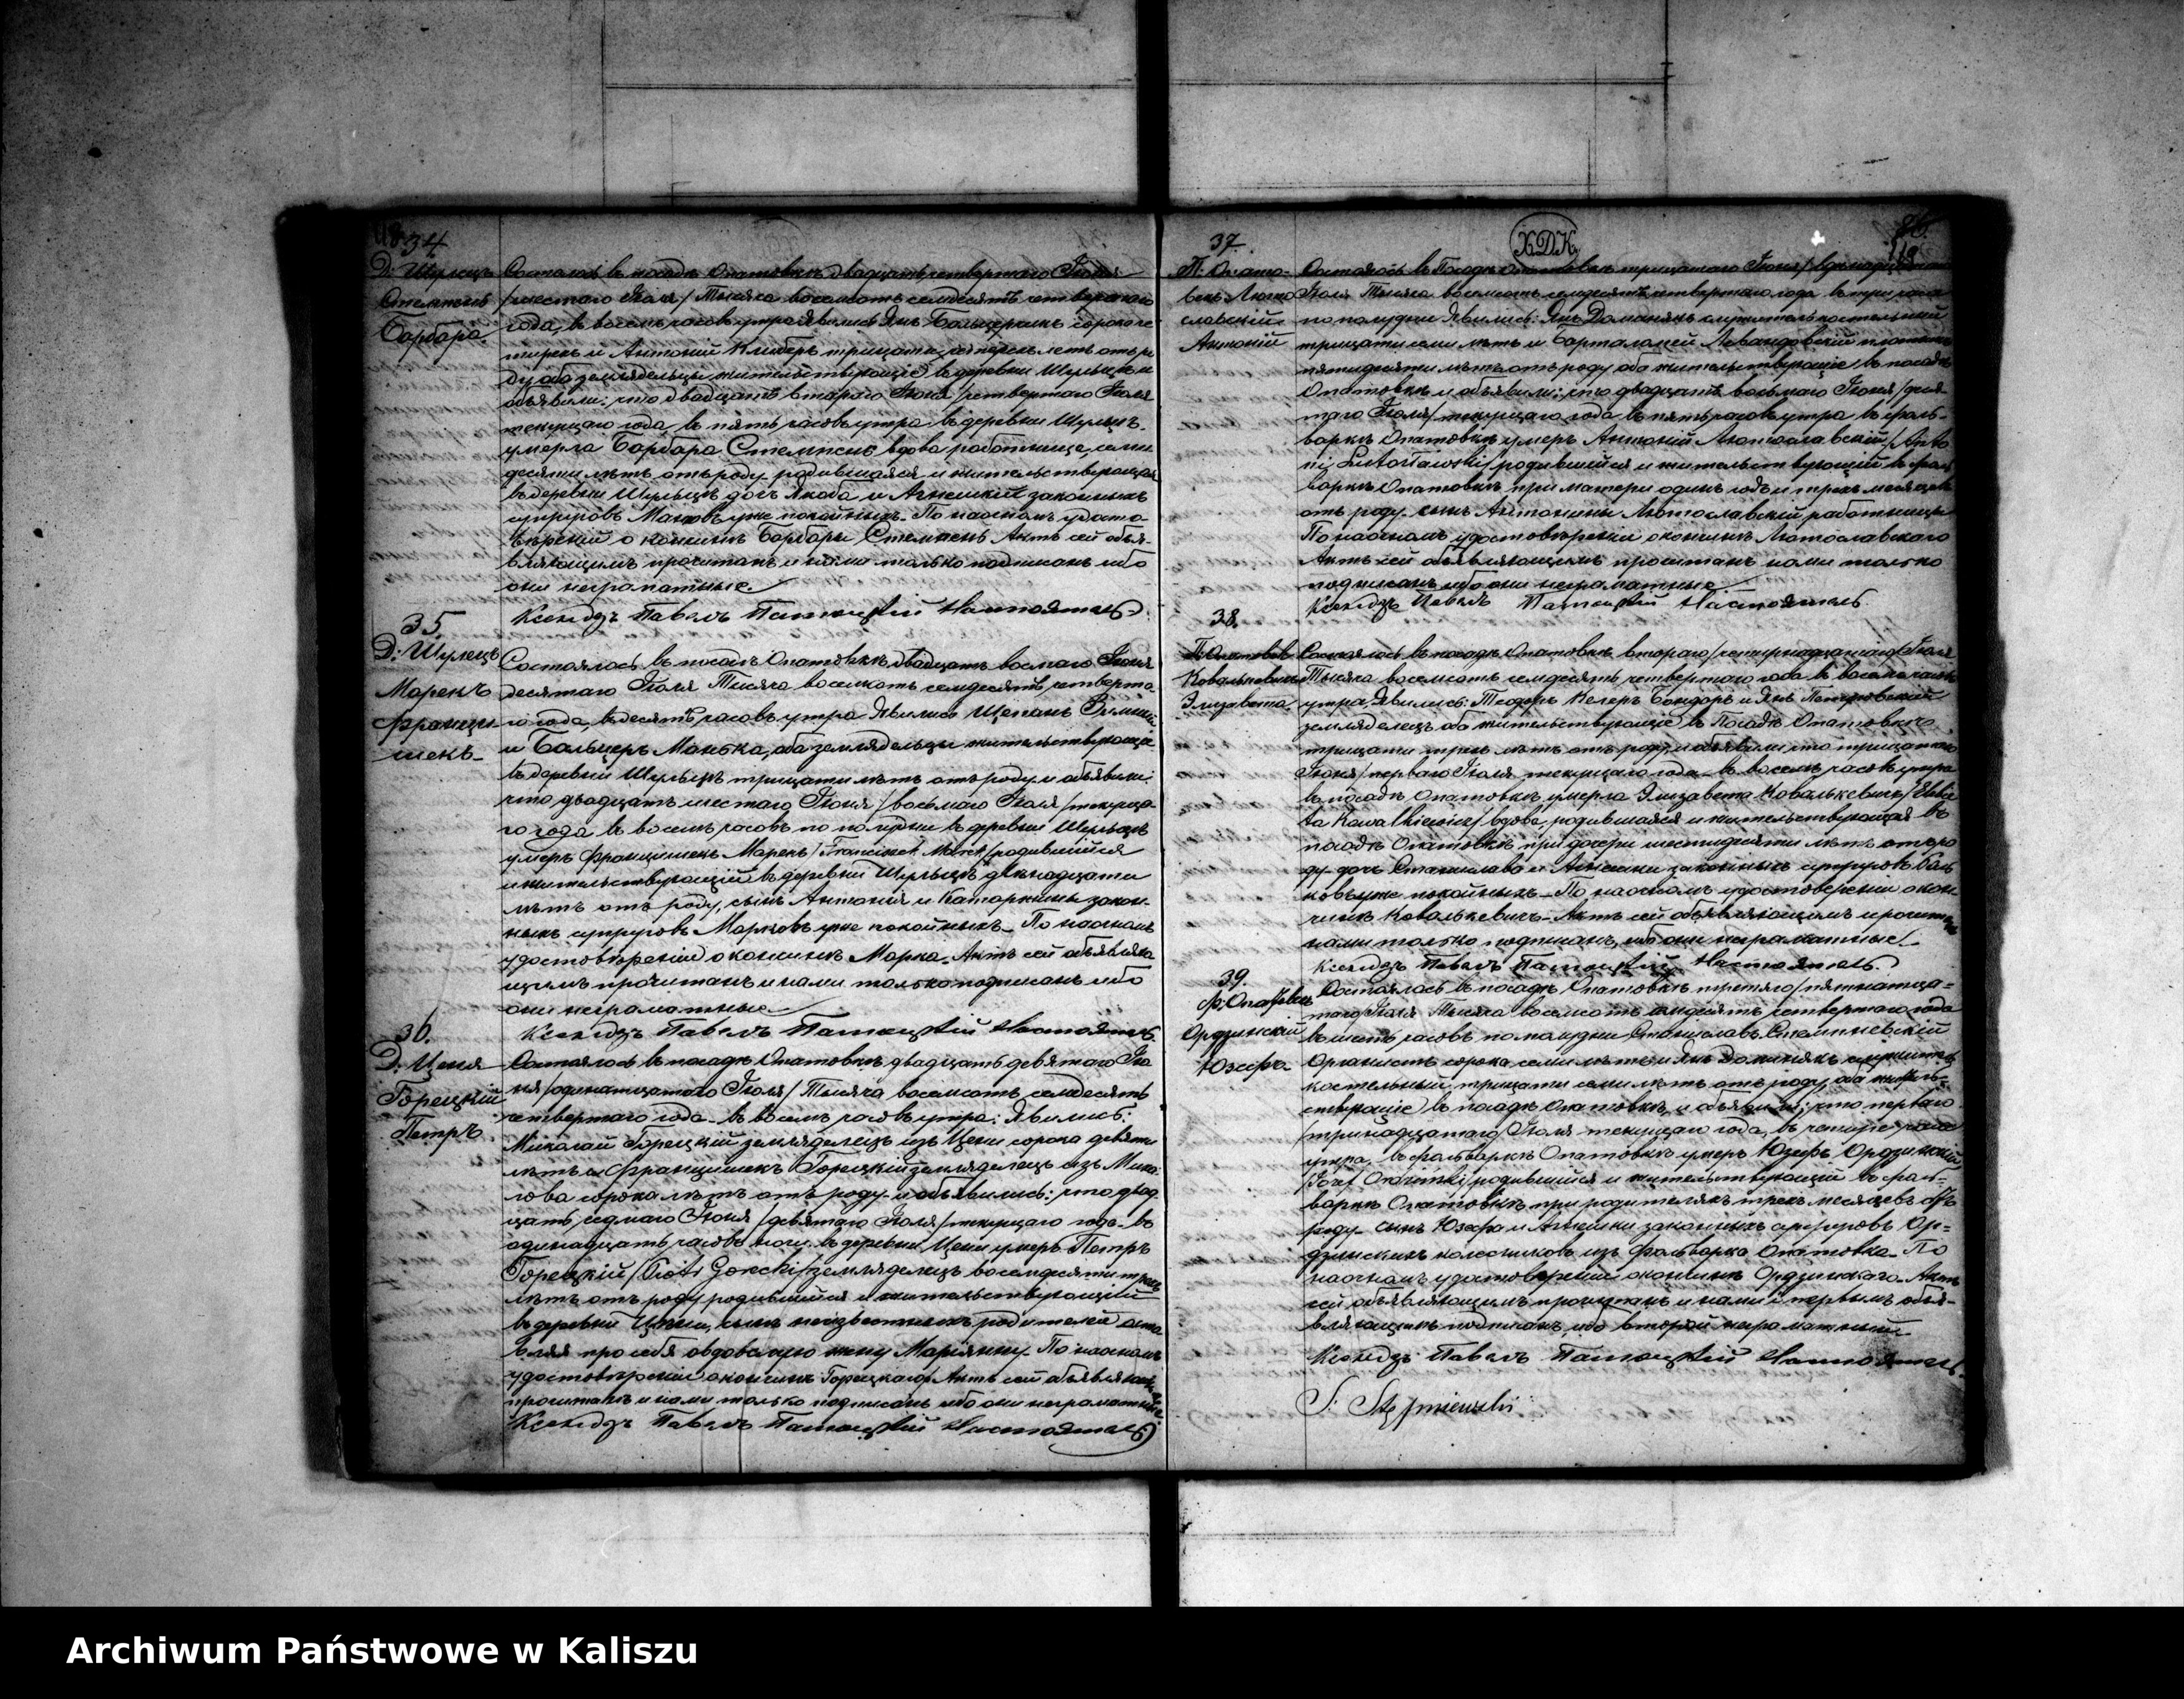 34
Д: Шулецъ
Стемпень
Барбара.
Состоялось въ посадѣ Опатовкѣ двадцать четвертаго Іюня
/шестаго Іюля/ Тысяча восемсотъ семдесятъ четвертаго
года, въ восемь часовъ утра. Явились Янъ
и Антоній лѣтъ отъ ро-
ду оба земледѣльцы жительствующіе въ деревни Шульцѣ и
объявили; что двадцать втораго Іюня /четвертаго Іюля
текущаго года въ пять часовъ утра въ деревни Шульцѣ
умерла Барбара Стемпень вдова работница, семи
десяти лѣтъ отъ роду родившаяся и жительствующая
въ деревни Шульцѣ дочь Якоба и Агнешки законныхъ
супруговъ уже покойныхъ. По наочномъ удосто-
вѣреніи о кончинѣ Барбары Стемпень Актъ сей объя-
вляющимъ прочитанъ и нами только подписанъ ибо
они неграматные.
Ксендзъ Павелъ Настоятель
35.
Д: Шулецъ
Марекъ
Францы-
шекъ
Состоялось въ посадѣ Опатовкѣ двадцать восмаго Іюня
десятаго Іюля Тысяча восемсотъ семдесятъ четверта-
го года, въ десять часовъ утра Явились Щепанъ
и Бальцеръ оба земледѣльцы жительствующіе
въ деревни Шульцѣ тридцати лѣтъ отъ роду и объявили;
что двадцать шестаго Іюня /восьмаго Іюля/ текуща-
го года въ восемь часовъ по полудни въ деревни Шульцѣ
умеръ Францишекъ Марекъ /Franciszek Marek/ родившійся
и жительствующій въ деревни Шульцѣ двѣнадцати
лѣтъ отъ роду, сынъ Антонія и Катаржины закон-
ныхъ супруговъ Марковъ уже покойныхъ. По наочномъ
удостовѣреніи о кончинѣ Марка. Актъ сей объявляю-
щимъ прочитанъ и нами только подписанъ ибо
они неграматные
Ксендзъ Павелъ Настоятель.
36.
Д: Ценя
Горецкій
Петръ
Состоялось въ посадѣ Опатовкѣ двадцать девятаго Ію-
ня /одинатцатого Іюля/ Тысяча восемсотъ семдесятъ
четвертаго года въ восемь часовъ утра; Явились:
Миколай Горецкій земляделецъ изъ Цени сорока девяти
лѣтъ и Францишекъ Горецкій земляделецъ изъ
сорока лѣтъ отъ роду и объявились; что двад
цать седмаго Іюня /девятаго Іюля/ текущаго года въ
одинадцать часовъ ночи въ деревни Цени умеръ Петръ
Горецкій /Piotr Gorecki/ земляделецъ восемдесяти трехъ
лѣтъ отъ роду родившійся и жительствующій
въ деревни Цени, сынъ неизвестныхъ родителей оста
вляя про себя овдовелую жену Маріянну. По наочномъ
удостовѣреніи о кончинѣ Горецкаго Актъ сей объявляющимъ
прочитанъ и нами только подписанъ ибо они неграматные.
Ксендзъ Павелъ Настоятель
ХДК
37.
П: Опато-
векъ Люто
славскій
Антоній
Состоялось въ Посадѣ Опатовкѣ тридцатаго Іюня
Іюля Тысяча восемсотъ семдесятъ четвертаго года въ три часа
по полудни Явились: Янъ Доминякъ служитель костельный
тридцати семи лѣтъ и Барталомей Левандовскій
пятидесяти лѣтъ отъ роду оба жительствующіе въ посадѣ
Опатовкѣ и объявили; что двадцать восьмаго Іюня /деся-
таго Іюля/ текущаго года въ пять часовъ утра въ фоль-
варкѣ Опатовкѣ умеръ Антоній Лютославскій /Anto
ni Lutosławski/ родившійся и жительствующій въ фоль
варкѣ Опатовкѣ при матери одинъ годъ и трехъ месяцевъ
отъ роду сынъ Антонины Лютославскій работницы
По наочномъ удостовѣреніи о кончинѣ Лютославскаго
Актъ сей объявляющимъ прочитанъ нами только
подписанъ ибо они неграматные
Ксендзъ Павелъ Настоятель.
38.
П: Опатовекъ
Ковалькевичъ
Элизавета
Состоялось въ посадѣ Опатовкѣ втораго /четырнадцатаго/ Іюля
Тысяча восемсотъ семдесятъ четвертаго года въ восемь часовъ
утра, Явились: Теодоръ и Янъ
земляделецъ, оба жительствующіе въ Посадѣ Опатовкѣ,
тридцати трехъ лѣтъ отъ роду, и объявили что тридцатаго
Іюня /перваго Іюля текущаго года въ восемь часовъ утра
въ посадѣ Опатовкѣ умерла Элизавета Ковалькевичъ /Elzbie
ta Kowalkiewicz/ вдова, родившаяся и жительствующая въ
посадѣ Опатовкѣ при дочери шестидесяти лѣтъ отъ ро
ду дочь Станислава и Агнешки законныхъ супруговъ
уже покойныхъ. По наочномъ удостоверении о кон-
чинѣ Ковалькевичъ. Актъ сей объявляющимъ прочитанъ
нами только подписанъ, ибо они неграматные.
Ксендзъ Павелъ Настоятель.
39.
Ф: Опатовекъ
Ордзинскій
Юзефъ
Состоялось въ посадѣ Опатовкѣ третяго /пятнатца-
таго/ Іюля Тысяча восемсотъ семдесятъ четвертаго года
въ шесть часовъ по полудни Станиславъ Стемпневскій
Органистъ сорока семи лѣтъ и Янъ Доминякъ служитель
костельный тридцати семи лѣтъ отъ роду, оба житель-
ствующіе въ посадѣ Опатовкѣ, и объявили; что перваго
/тринадцатаго/ Іюля текущаго года, въ четыре часа
утра въ фольваркѣ Опатовкѣ умеръ Юзефъ Ордзинскій
/Józef Ordziński/ родившійся и жительствующій въ фоль-
варкѣ Опатовкѣ при родителяхъ трехъ месяцевъ отъ
роду сынъ Юзефа и Агнешки законныхъ супруговъ Ор-
дзинскихъ колесниковъ изъ Фольварка Опатовка. По
наочномъ удостовѣреніи о кончинѣ Ордзинскаго. Актъ
сей объявляющимъ прочитанъ и нами и первымъ объя-
вляющимъ подписанъ, ибо второй неграматный.
Ксендзъ Павелъ Настоятель.
S. Stępniewski
Archiwum Państwowe w Kaliszu